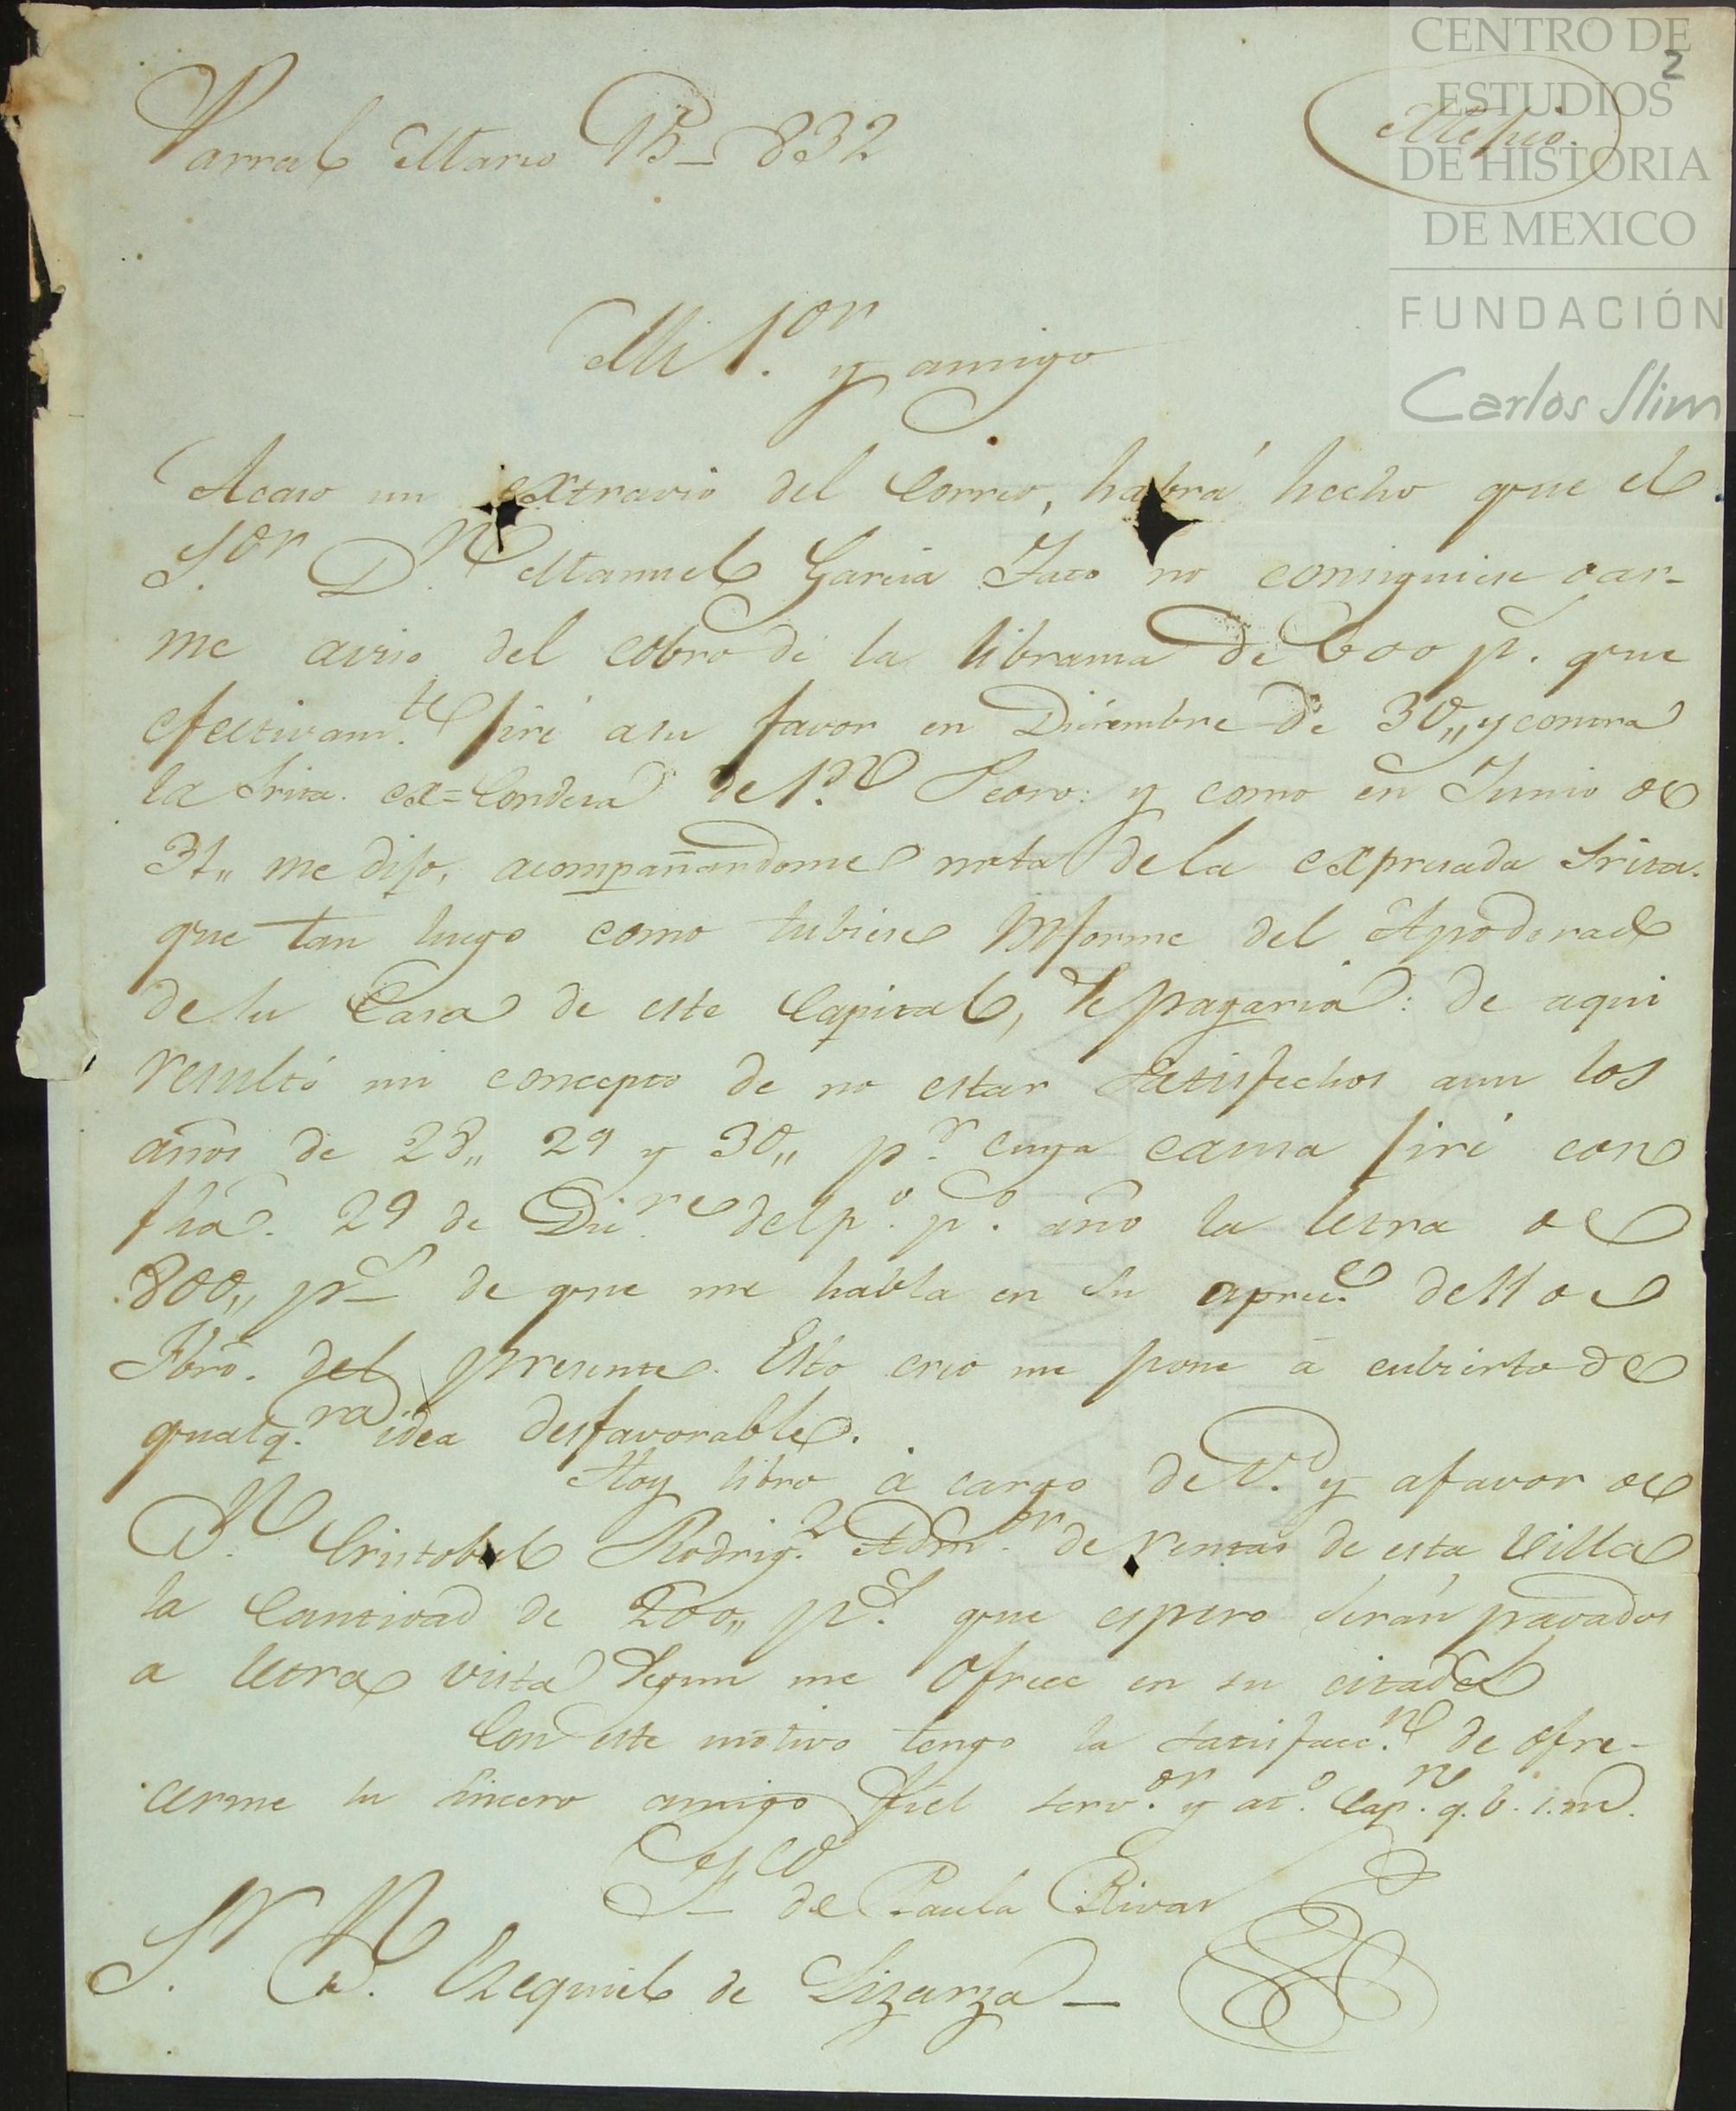 CENTRO DE
ESTUDIOS
DE HISTORIA
DE MEXICO
FUNDACIÓN
Carlos Slim
2
Parral Marzo 13_832
Mejico.
Mi S.or y amigo
Acaso un extravio del Correo, habrá hecho que el
S.or D.n Manuel Garcia no consiguiese dar-
me aviso del cobro de la libranza de 600 p.s que
efectivam.te jiré a su favor en Diciembre de 30,, y contra
la Srita. ex=Condesa de S.n Pedro: y como en Junio de
31,, me dijo, acompañandome nota de la expresada Srita.
que tan luego como tubiese informe del Apoderado
de su Casa de esta Capital, le pagaria: de aqui
resultó mi concepto de no estar satisfechos aun los
años de 28,, 29 y 30,, p.r cuya causa jiré con
fhã. 29 de Di.re del p.o p.o año la letra de
800,, p.s de que me habla en su aprec.e de 11 de
Fbrõ. del presente. Esto creo me pone á cubierto de
qualq.ra idea desfavorable.
Hoy libro á cargo de V.d y a favor de
D.n Cristobal Rodrig.z Adm.or de rentas de esta Villa
la Cantidad de 200,, p.s que espero serán pagados
a letra vista segun me ofrece en su citada
Con este motivo tengo la satisfacc.n de ofre-
cerme su sincero amigo fiel serv.or y at.o Cap.n q. b. s. m.
F.co de Paula Rivas
S.r D.n Ezequiel de Lizarza_